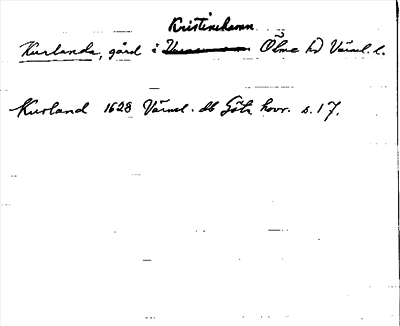 Kristinehamn
Kurlanda, gård i Ölme hd Värml. l.
Kurland 1628 Värml. db Göta hovr. s. 17.